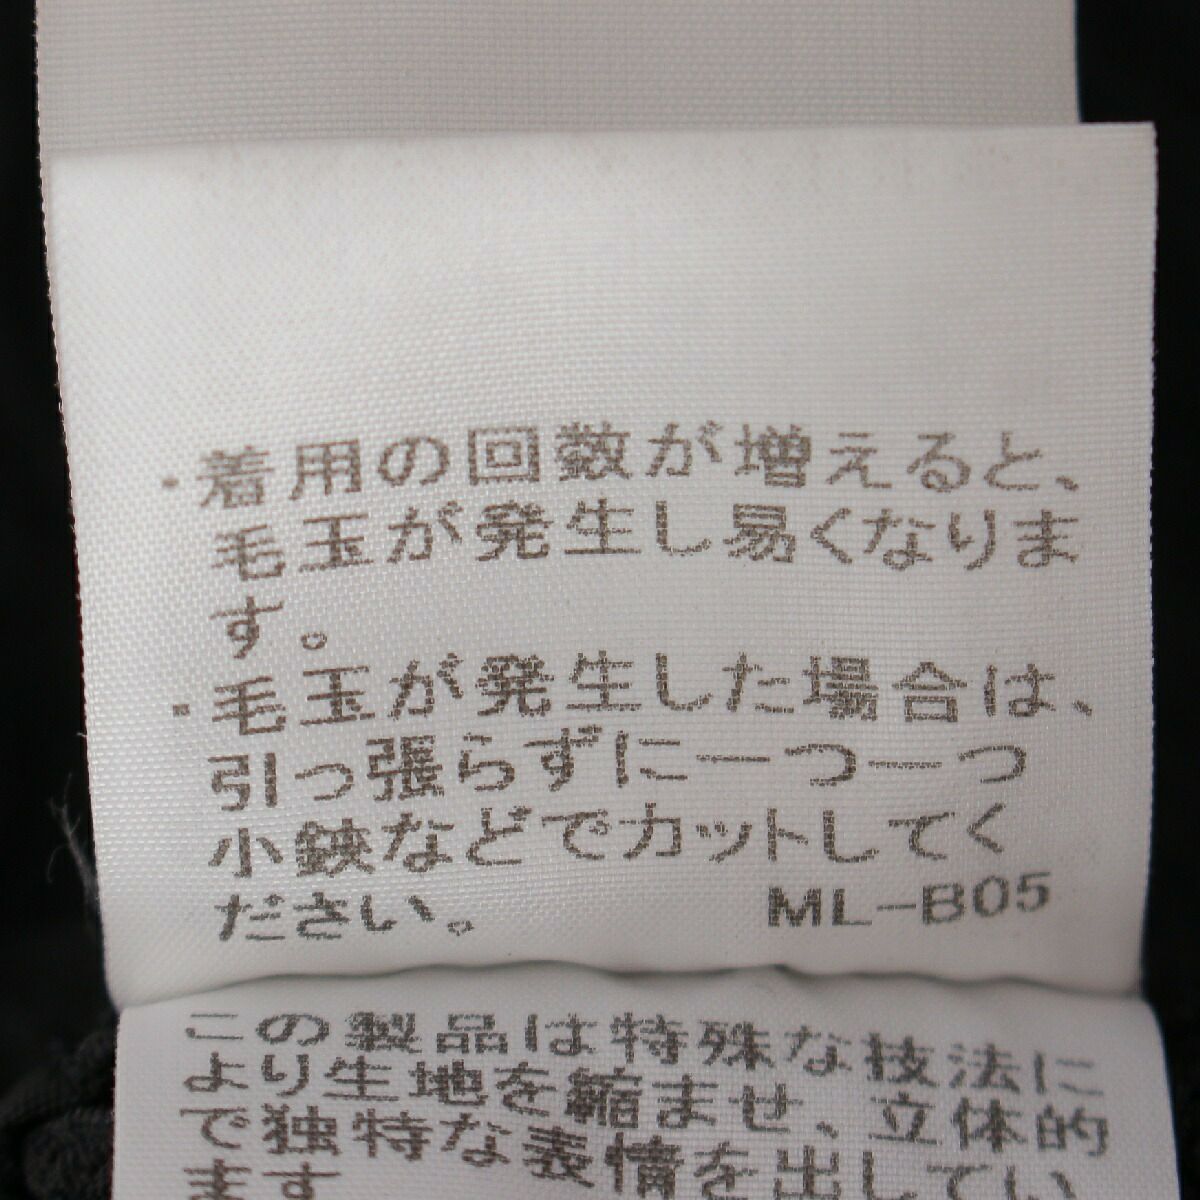 ・着用の回数が増えると、
毛玉が発生し易くなりま
す。
・毛玉が発生した場合は、
引っ張らずに一つ一つ
小鋏などでカットしてく
ださい。 ML-B05
この製品は特殊な技法に
より生地を縮ませ、立体的
で独特な表情を出してい
ます